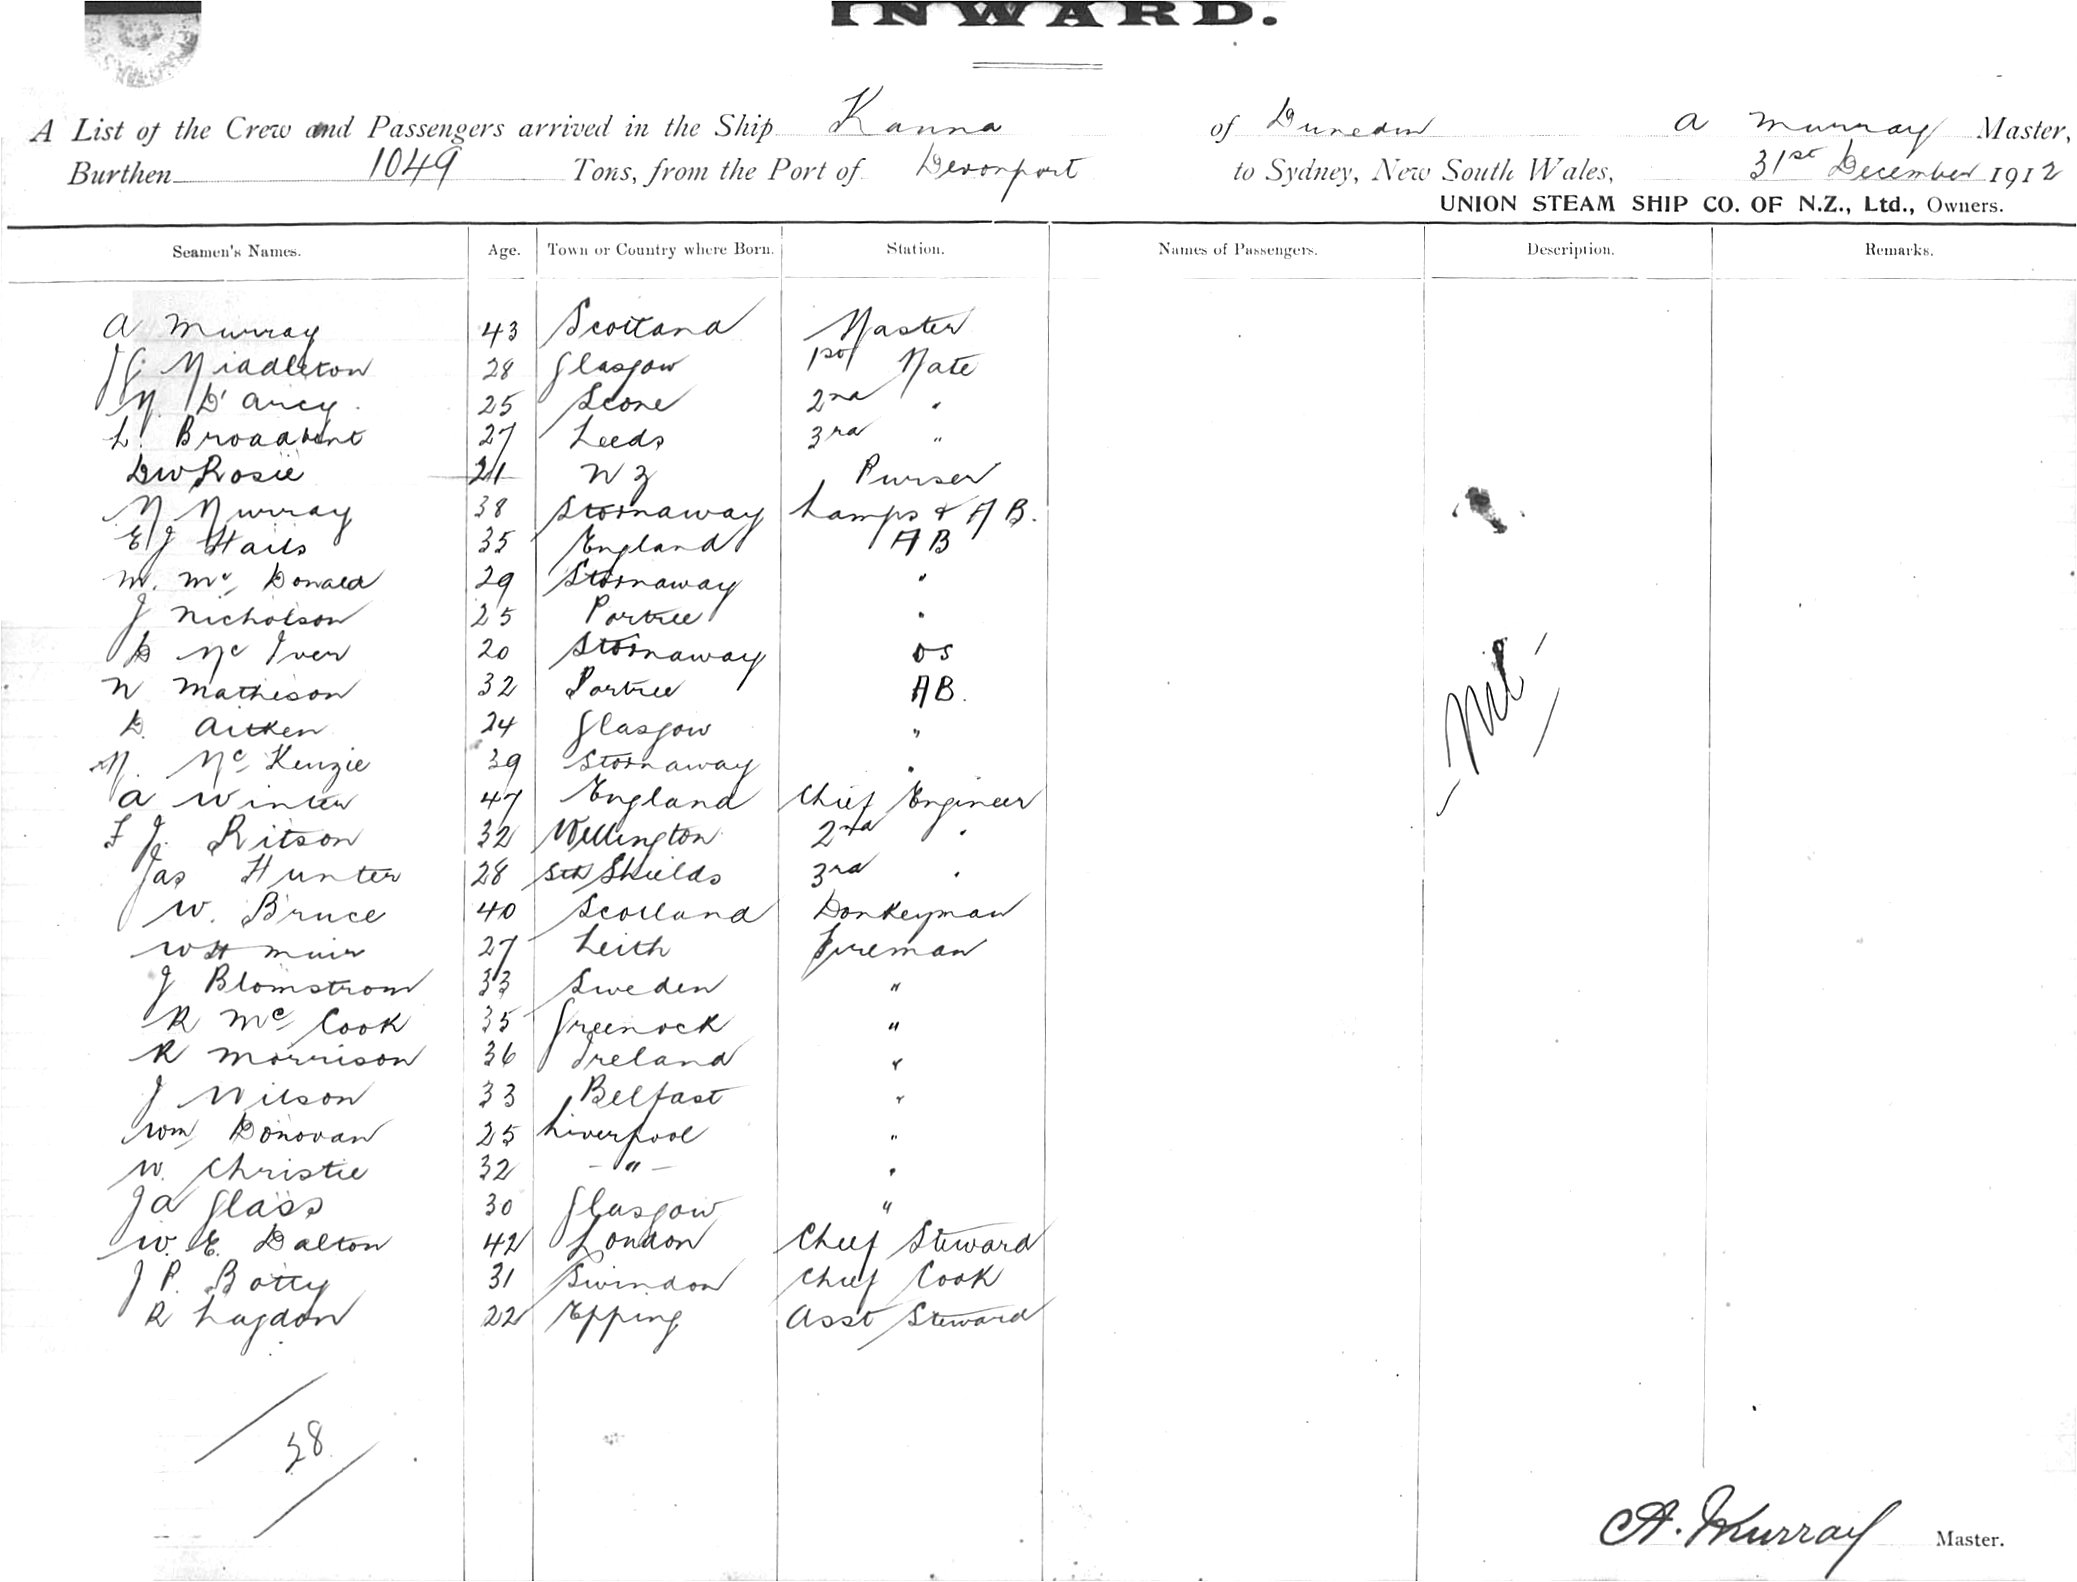 INWARD.
A List of the Crew and Passengers arrived in the Ship Kanna of Dunedin A Murray Master,
Burthen 1049 Tons, from the Port of Devonport to Sydney, New South Wales, 31st December 1912
UNION STEAM SHIP CO. OF N.Z., Ltd., Owners.
Seamen's Names. Age. Town or Country where Born. Station. Names of Passengers. Description. Remarks.
A Murray 43 Scotland Master
J G Middleton 28 Glasgow 1st Mate
M. D'Arcy. 25 Scone 2nd "
L. Broadbent 27 Leeds 3rd "
D W Rosie 21 N Z Purser
M Murray 38 Stornaway Lamps & A B.
E J Hails 35 England A B
M. Mc Donald 29 Stornaway "
J Nicholson 25 Portree "
D Mc Iver 20 Stornaway OS
N Matheson 32 Portree AB.
D. Aitken 24 Glasgow "
M. Mc Kenzie 39 Stornaway "
A Winter 47 England Chief Engineer
F J. Ritson 32 Wellington 2nd "
Jas Hunter 28 Sth Shields 3rd "
W. Bruce 40 Scotland Donkeyman
W H Muir 27 Leith Fireman
J Blomstrom 33 Sweden "
R Mc Cook 35 Greenock "
R Morrison 36 Ireland "
J Wilson 33 Belfast "
Wm Donovan 25 Liverpool "
W. Christie 32 - " - "
J A Glass 30 Glasgow "
W. E. Dalton 42 London Chief Steward
J P. Botty 31 Swindon Chief Cook
R Lagdon 22 Epping Asst Steward
- Nil -
28
A. Murray Master.